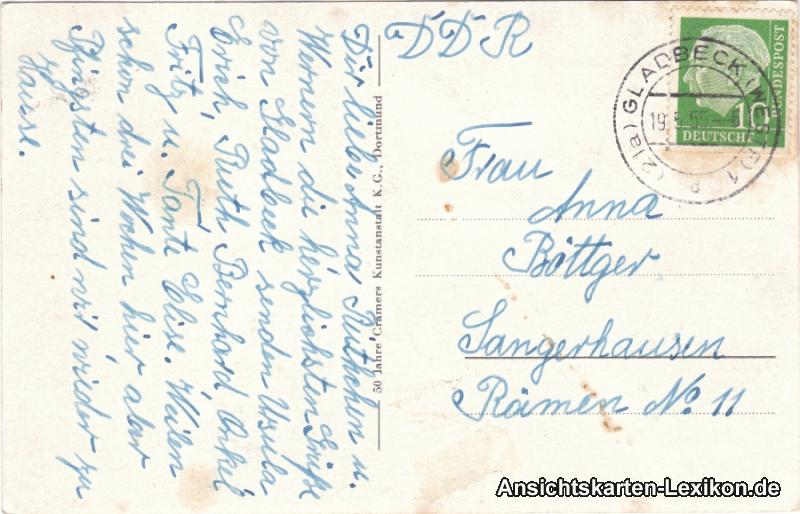 Dir liebe Anna, Rütchen u.
Wernern die herzlichsten Grüße
von Gladbeck senden Ursula
Erich, Ruth Bernhard Onkel
Fritz u. Tante Elise. Weilen
schon drei Wochen hier aber
Pfingsten sind wir wieder zu
Hause.
50 Jahre Cramers Kunstanstalt K.G., Dortmund
DDR
GLADBECK (WESTF) 1
(21a)
19.5.55
10
DEUTSCHE
BUNDESPOST
Frau
Anna
Böttger
Sangerhausen
Rämen No 11
Ansichtskarten-Lexikon.de